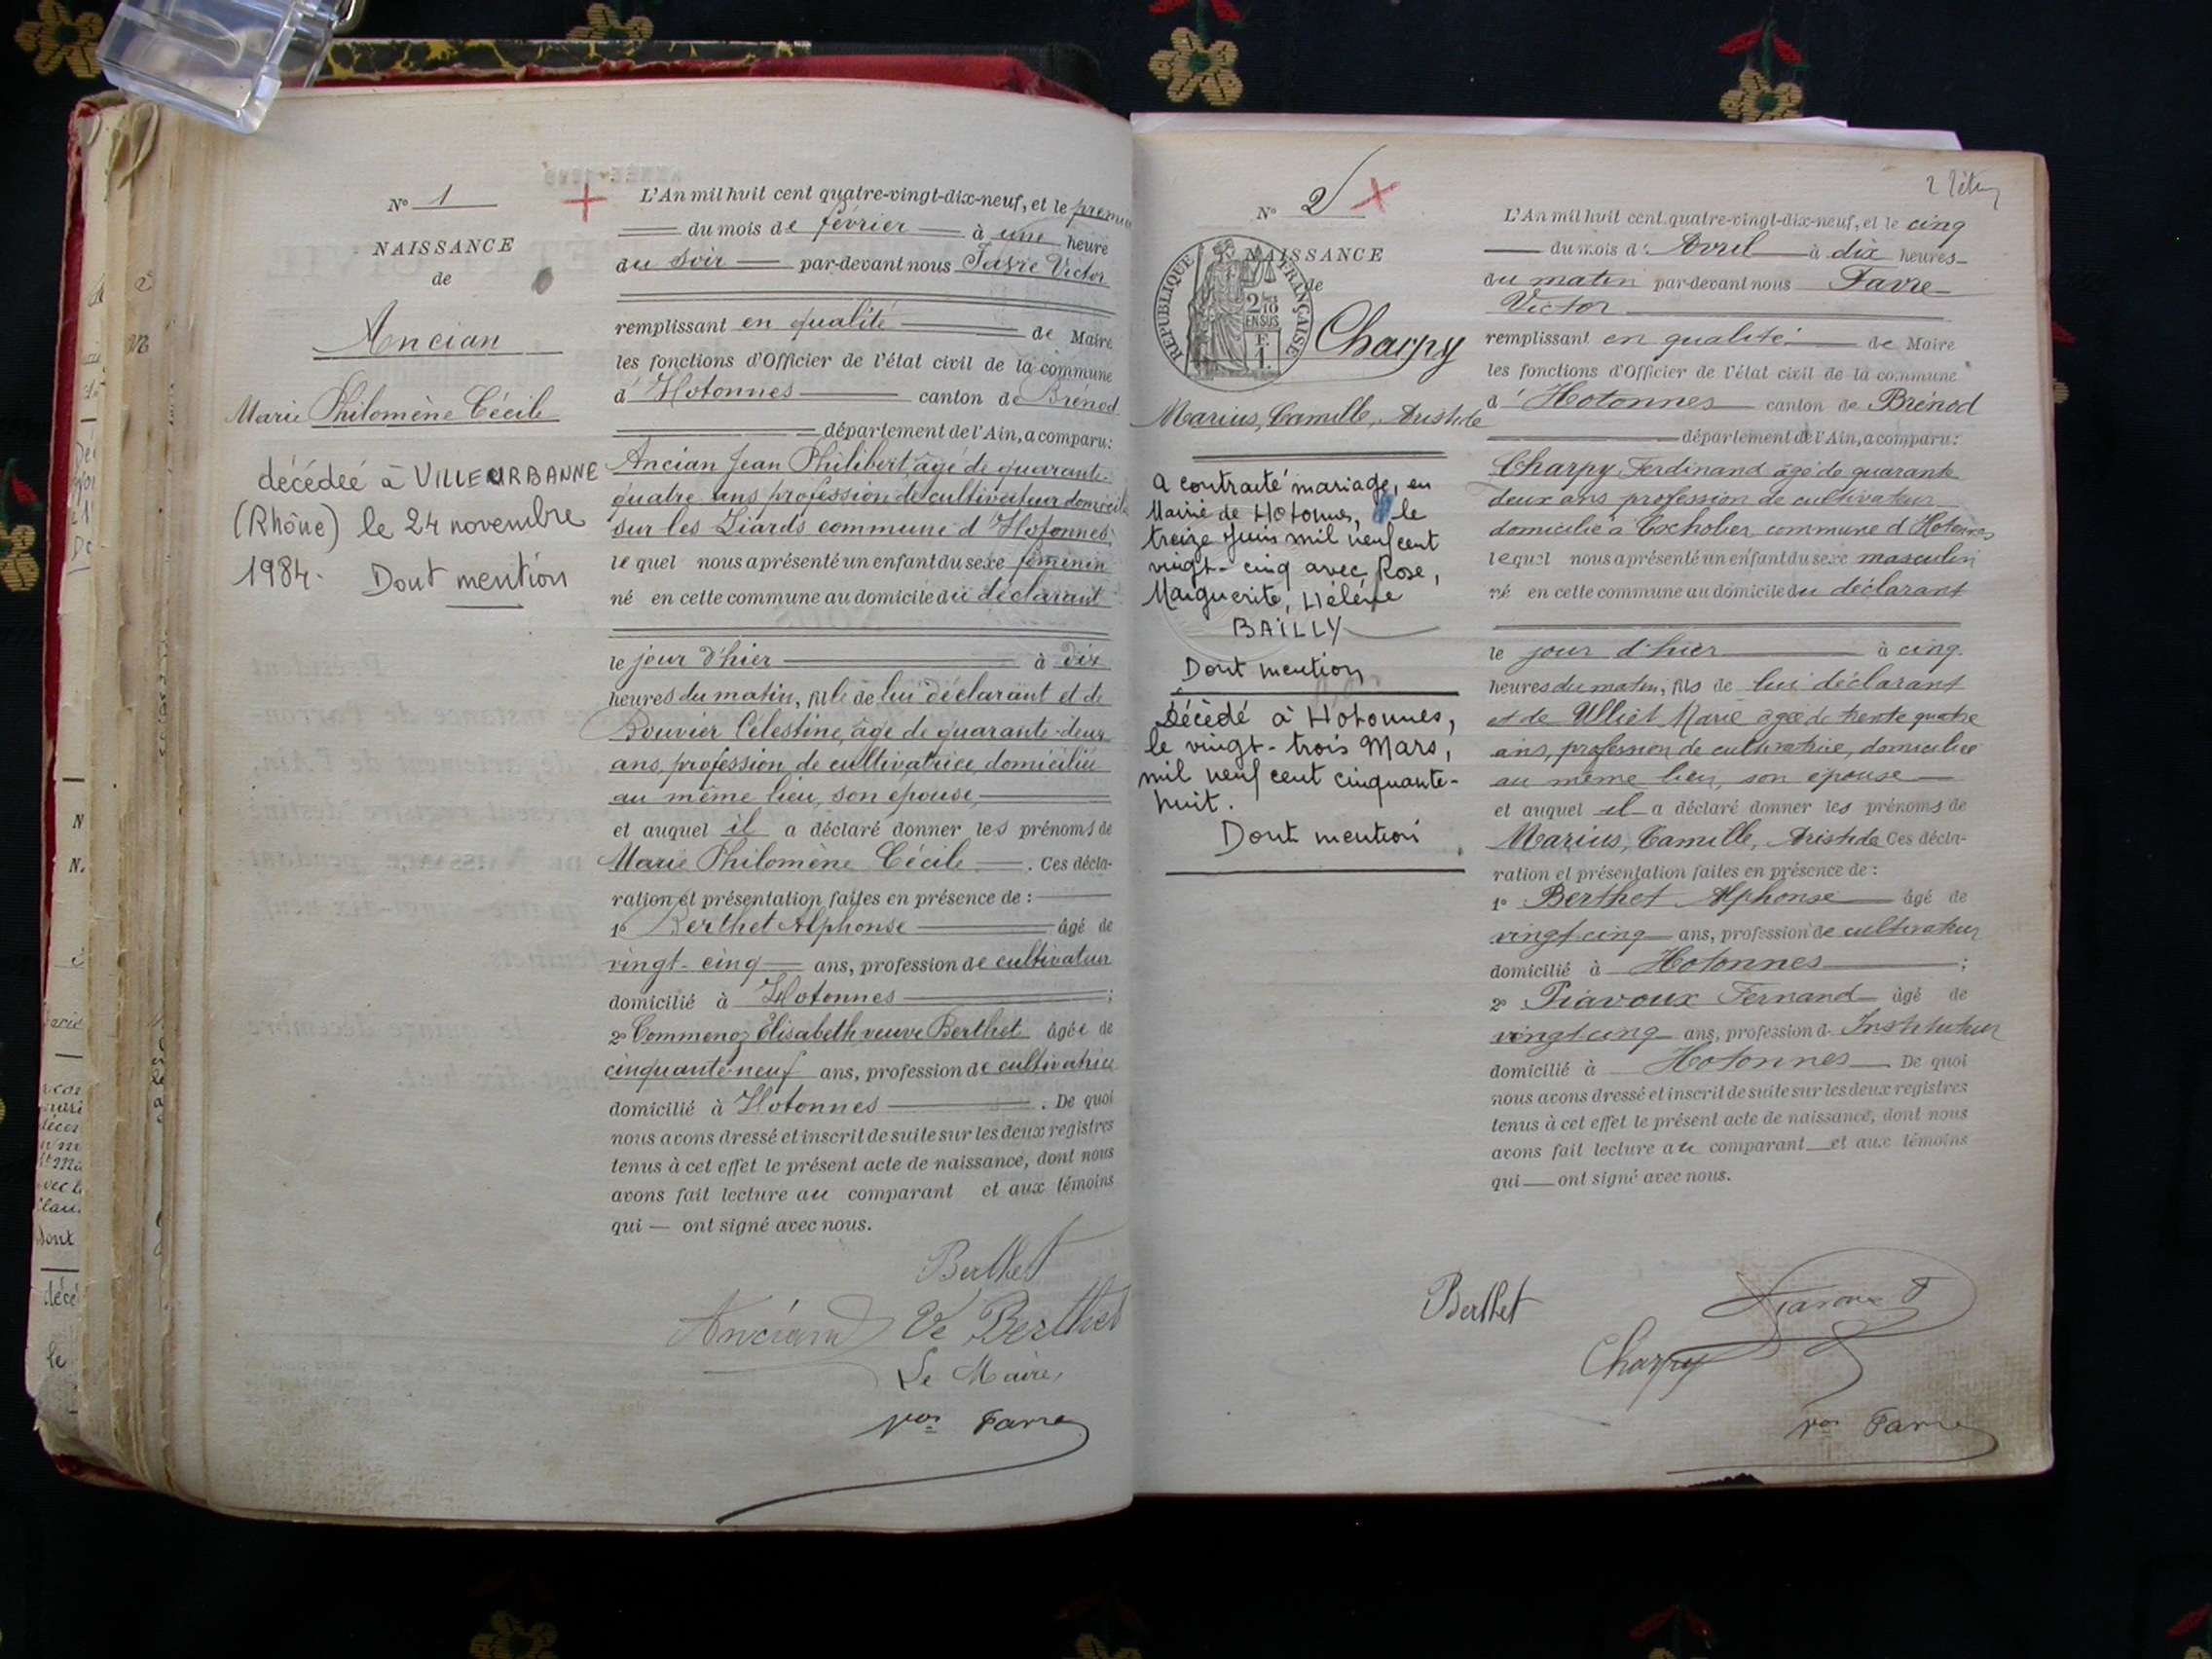 N° 1
NAISSANCE
de
Ancian
Marie Philomène Cécile
décédée à VILLEURBANNE
(Rhône) le 24 novembre
1984. Dont mention
L'An mil huit cent quatre-vingt-dix-neuf, et le premier
du mois de février à une heure
du soir par-devant nous Favre Victor
remplissant en qualité de Maire
les fonctions d'Officier de l'état civil de la commune
d'Hotonnes canton de Brénod
département de l'Ain, a comparu:
Ancian Jean Philibert âgé de quarante-
quatre ans profession de cultivateur domicilié
sur les Liards commune d'Hotonnes
lequel nous a présenté un enfant du sexe féminin
né en cette commune au domicile du déclarant
le jour d'hier à dix
heures du matin, fille de lui déclarant et de
Bouvier Célestine, âgé de quarante-deux
ans, profession de cultivatrice, domiciliée
au même lieu, son épouse,
et auquel il a déclaré donner les prénoms de
Marie Philomène Cécile. Ces décla-
ration et présentation faites en présence de :
1° Berthet Alphonse âgé de
vingt-cinq ans, profession de cultivateur
domicilié à Hotonnes ;
2° Commenoz Elisabeth veuve Berthet âgée de
cinquante neuf ans, profession de cultivatrice
domicilié à Hotonnes. De quoi
nous avons dressé et inscrit de suite sur les deux registres
tenus à cet effet le présent acte de naissance, dont nous
avons fait lecture au comparant et aux témoins
qui — ont signé avec nous.
Berthet
Anciand Ve Berthet
Le Maire,
Vor Favre
2
N° 2
NAISSANCE
de
RÉPUBLIQUE FRANÇAISE
2/10
EN SUS
F.
1.
Charpy
Marius, Camille, Aristide
a contracté mariage, en
Mairie de Hotonnes, le
treize Juin mil neuf cent
vingt-cinq avec Rose,
Marguerite, Hélène
BAILLY
Dont mention
Décédé à Hotonnes,
le vingt-trois Mars,
mil neuf cent cinquante-
huit.
Dont mention
L'An mil huit cent quatre-vingt-dix-neuf, et le cinq
du mois d'Avril à dix heures
du matin par-devant nous Favre
Victor
remplissant en qualité de Maire
les fonctions d'Officier de l'état civil de la commune
d'Hotonnes canton de Brénod
département de l'Ain, a comparu:
Charpy Ferdinand âgé de quarante
deux ans profession de cultivateur
domicilié à commune d'Hotonnes
lequel nous a présenté un enfant du sexe masculin
né en cette commune au domicile du déclarant
le jour d'hier à cinq
heures du matin, fils de lui déclarant
et de Ulliet Marie agée de trente quatre
ans, profession de cultivatrice, domiciliée
au même lieu, son épouse
et auquel il a déclaré donner les prénoms de
Marius, Camille, Aristide Ces décla-
ration et présentation faites en présence de :
1° Berthet Alphonse âgé de
vingt cinq ans, profession de cultivateur
domicilié à Hotonnes ;
2° Piavoux Fernand âgé de
vingt cinq ans, profession d'Instituteur
domicilié à Hotonnes De quoi
nous avons dressé et inscrit de suite sur les deux registres
tenus à cet effet le présent acte de naissance, dont nous
avons fait lecture au comparant et aux témoins
qui — ont signé avec nous.
Berthet
Piavoux F
Charpy
Vor Favre